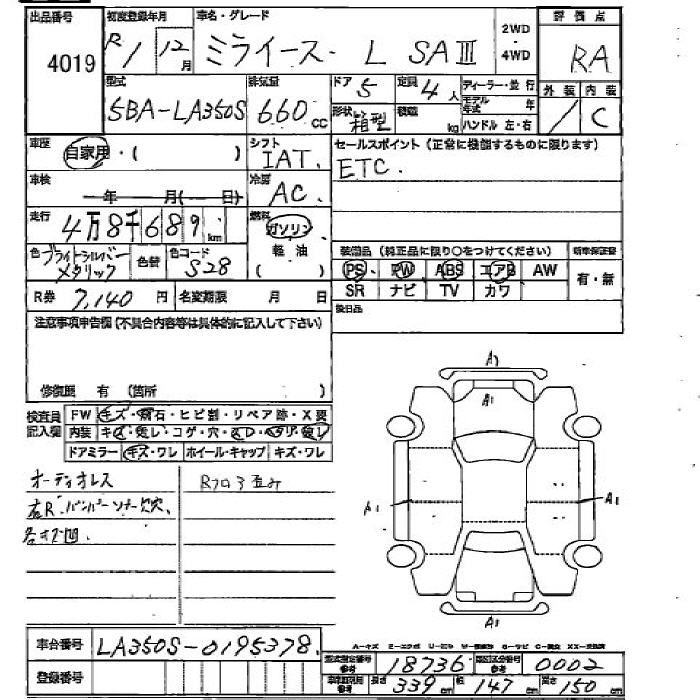 出品番号 4019
初度登録年月 R1 12月
車名・グレード ミライース・ L SAⅢ
2WD
4WD
評価点 RA
外装 / 内装 C
型式 5BA-LA350S
排気量 660cc
ドア 5
定員 4人
形状 箱型
積載 kg
ディーラー・並行
モデル年式 年
ハンドル 左・右
車歴 自家用・( )
シフト IAT.
セールスポイント (正常に機能するものに限ります)
ETC.
車検 年 月( 日)
冷房 AC.
走行 4万8千689km
燃料 ガソリン
軽油
( )
色 ブライトシルバーメタリック
色替
色コード S28
装備品 (純正品に限り○をつけてください)
新車保証書
PS PW ABS エアB AW
SR ナビ TV カワ
有・無
R券 7,140円
名変期限 月 日
後日品
注意事項申告欄(不具合内容等は具体的に記入して下さい)
修復歴 有 (箇所 )
検査員記入欄
FW キズ・飛石・ヒビ割・リペア跡・X要
内装
ドアミラー キズ・ワレ ホイール・キャップ キズ・ワレ
オーディオレス
右R.バンパーソナー欠穴.
各キズ凹.
Rフロア歪み
A1
A1
A1
A1
A1
A1
車台番号 LA350S-0195378.
登録番号
型式指定番号 参考 18736
類別区分番号 参考 0002
車両寸法 参考 長さ 339cm 幅 147cm 高さ 150cm